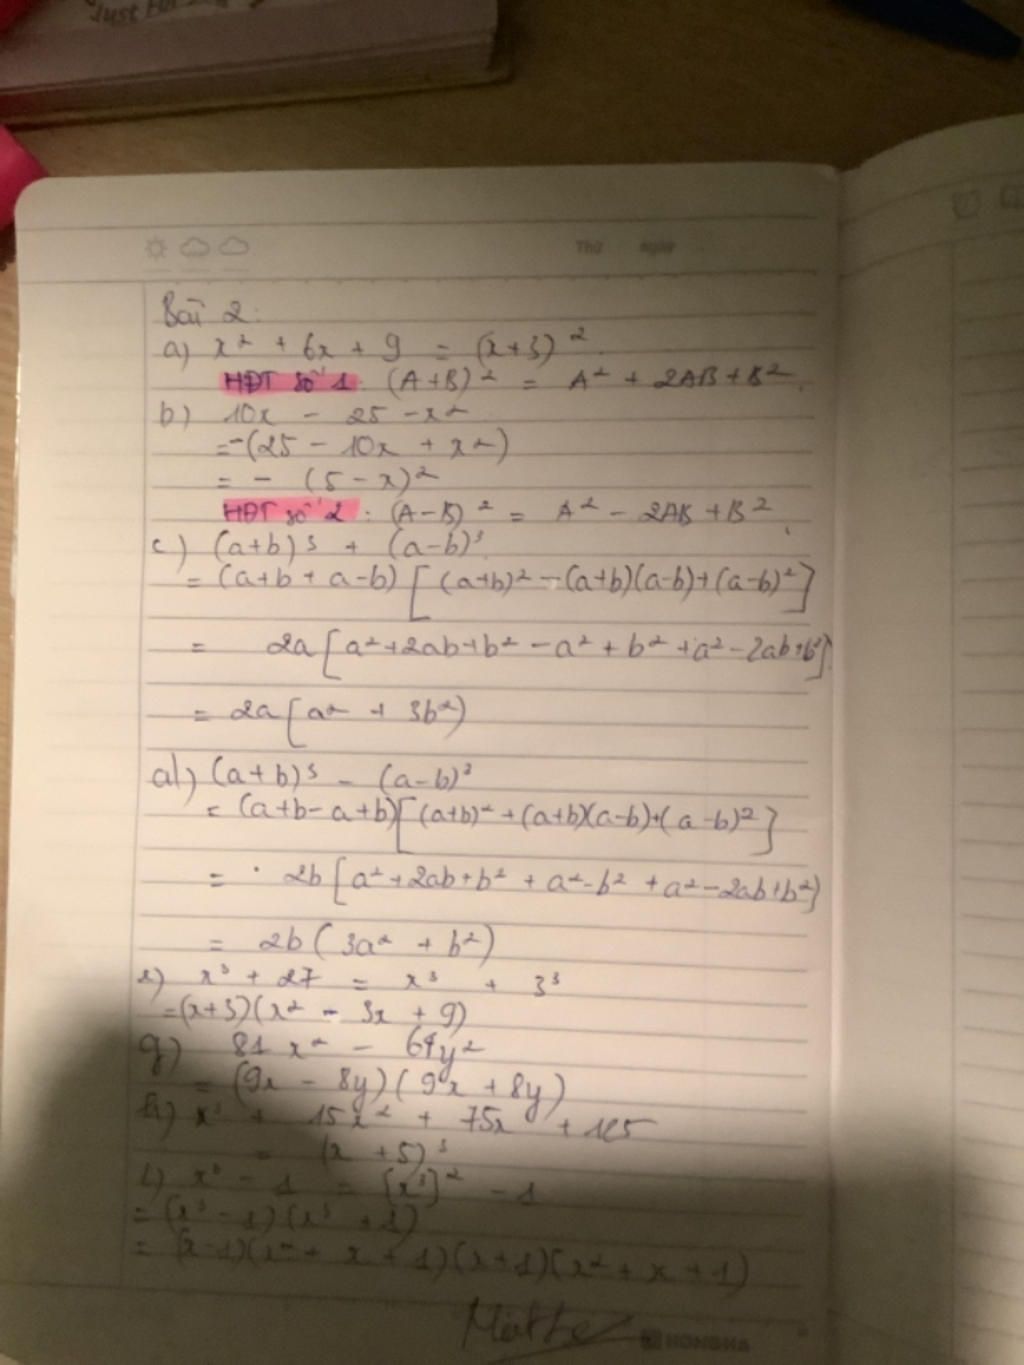 Just
Thứ ngày
Bài 2:
a) x² + 6x + 9 = (x+3)².
HĐT số 1: (A+B)² = A² + 2AB + B².
b) 10x - 25 - x²
= -(25 - 10x + x²)
= - (5 - x)²
HĐT số 2: (A-B)² = A² - 2AB + B².
c) (a+b)³ + (a-b)³
= (a+b + a-b) [(a+b)² - (a+b)(a-b) + (a-b)²]
= 2a [a² + 2ab + b² - a² + b² + a² - 2ab + b²]
= 2a [a² + 3b²)
d) (a+b)³ - (a-b)³
= (a+b-a+b)[(a+b)² + (a+b)(a-b) + (a-b)²]
= 2b [a² + 2ab + b² + a² - b² + a² - 2ab + b²)
= 2b (3a² + b²)
e) x³ + 27 = x³ + 3³
= (x+3)(x² - 3x + 9)
g) 81x² - 64y²
= (9x - 8y)(9x + 8y)
h) x³ + 15x² + 75x + 125
= (x + 5)³
- 1 = (x³)² - 1
= (x³ - 1)(x³ + 1)
= (x-1)(x² + x + 1)(x+1)(x² + x + 1)
HONGHA